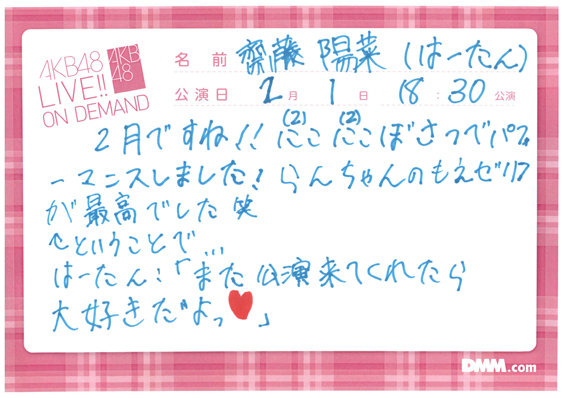 AKB48
LIVE!!
ON DEMAND
AKB
48
名前 齋藤 陽菜(はーたん)
公演日 2月1日 18:30公演
2月ですね!! にこ(2) にこ(2)ぼさつでパフォ
ーマンスしました! らんちゃんのもえゼリフ
が最高でした 笑
↑ということで...
はーたん:「また公演来てくれたら
大好きだよっ♥」
DMM.com